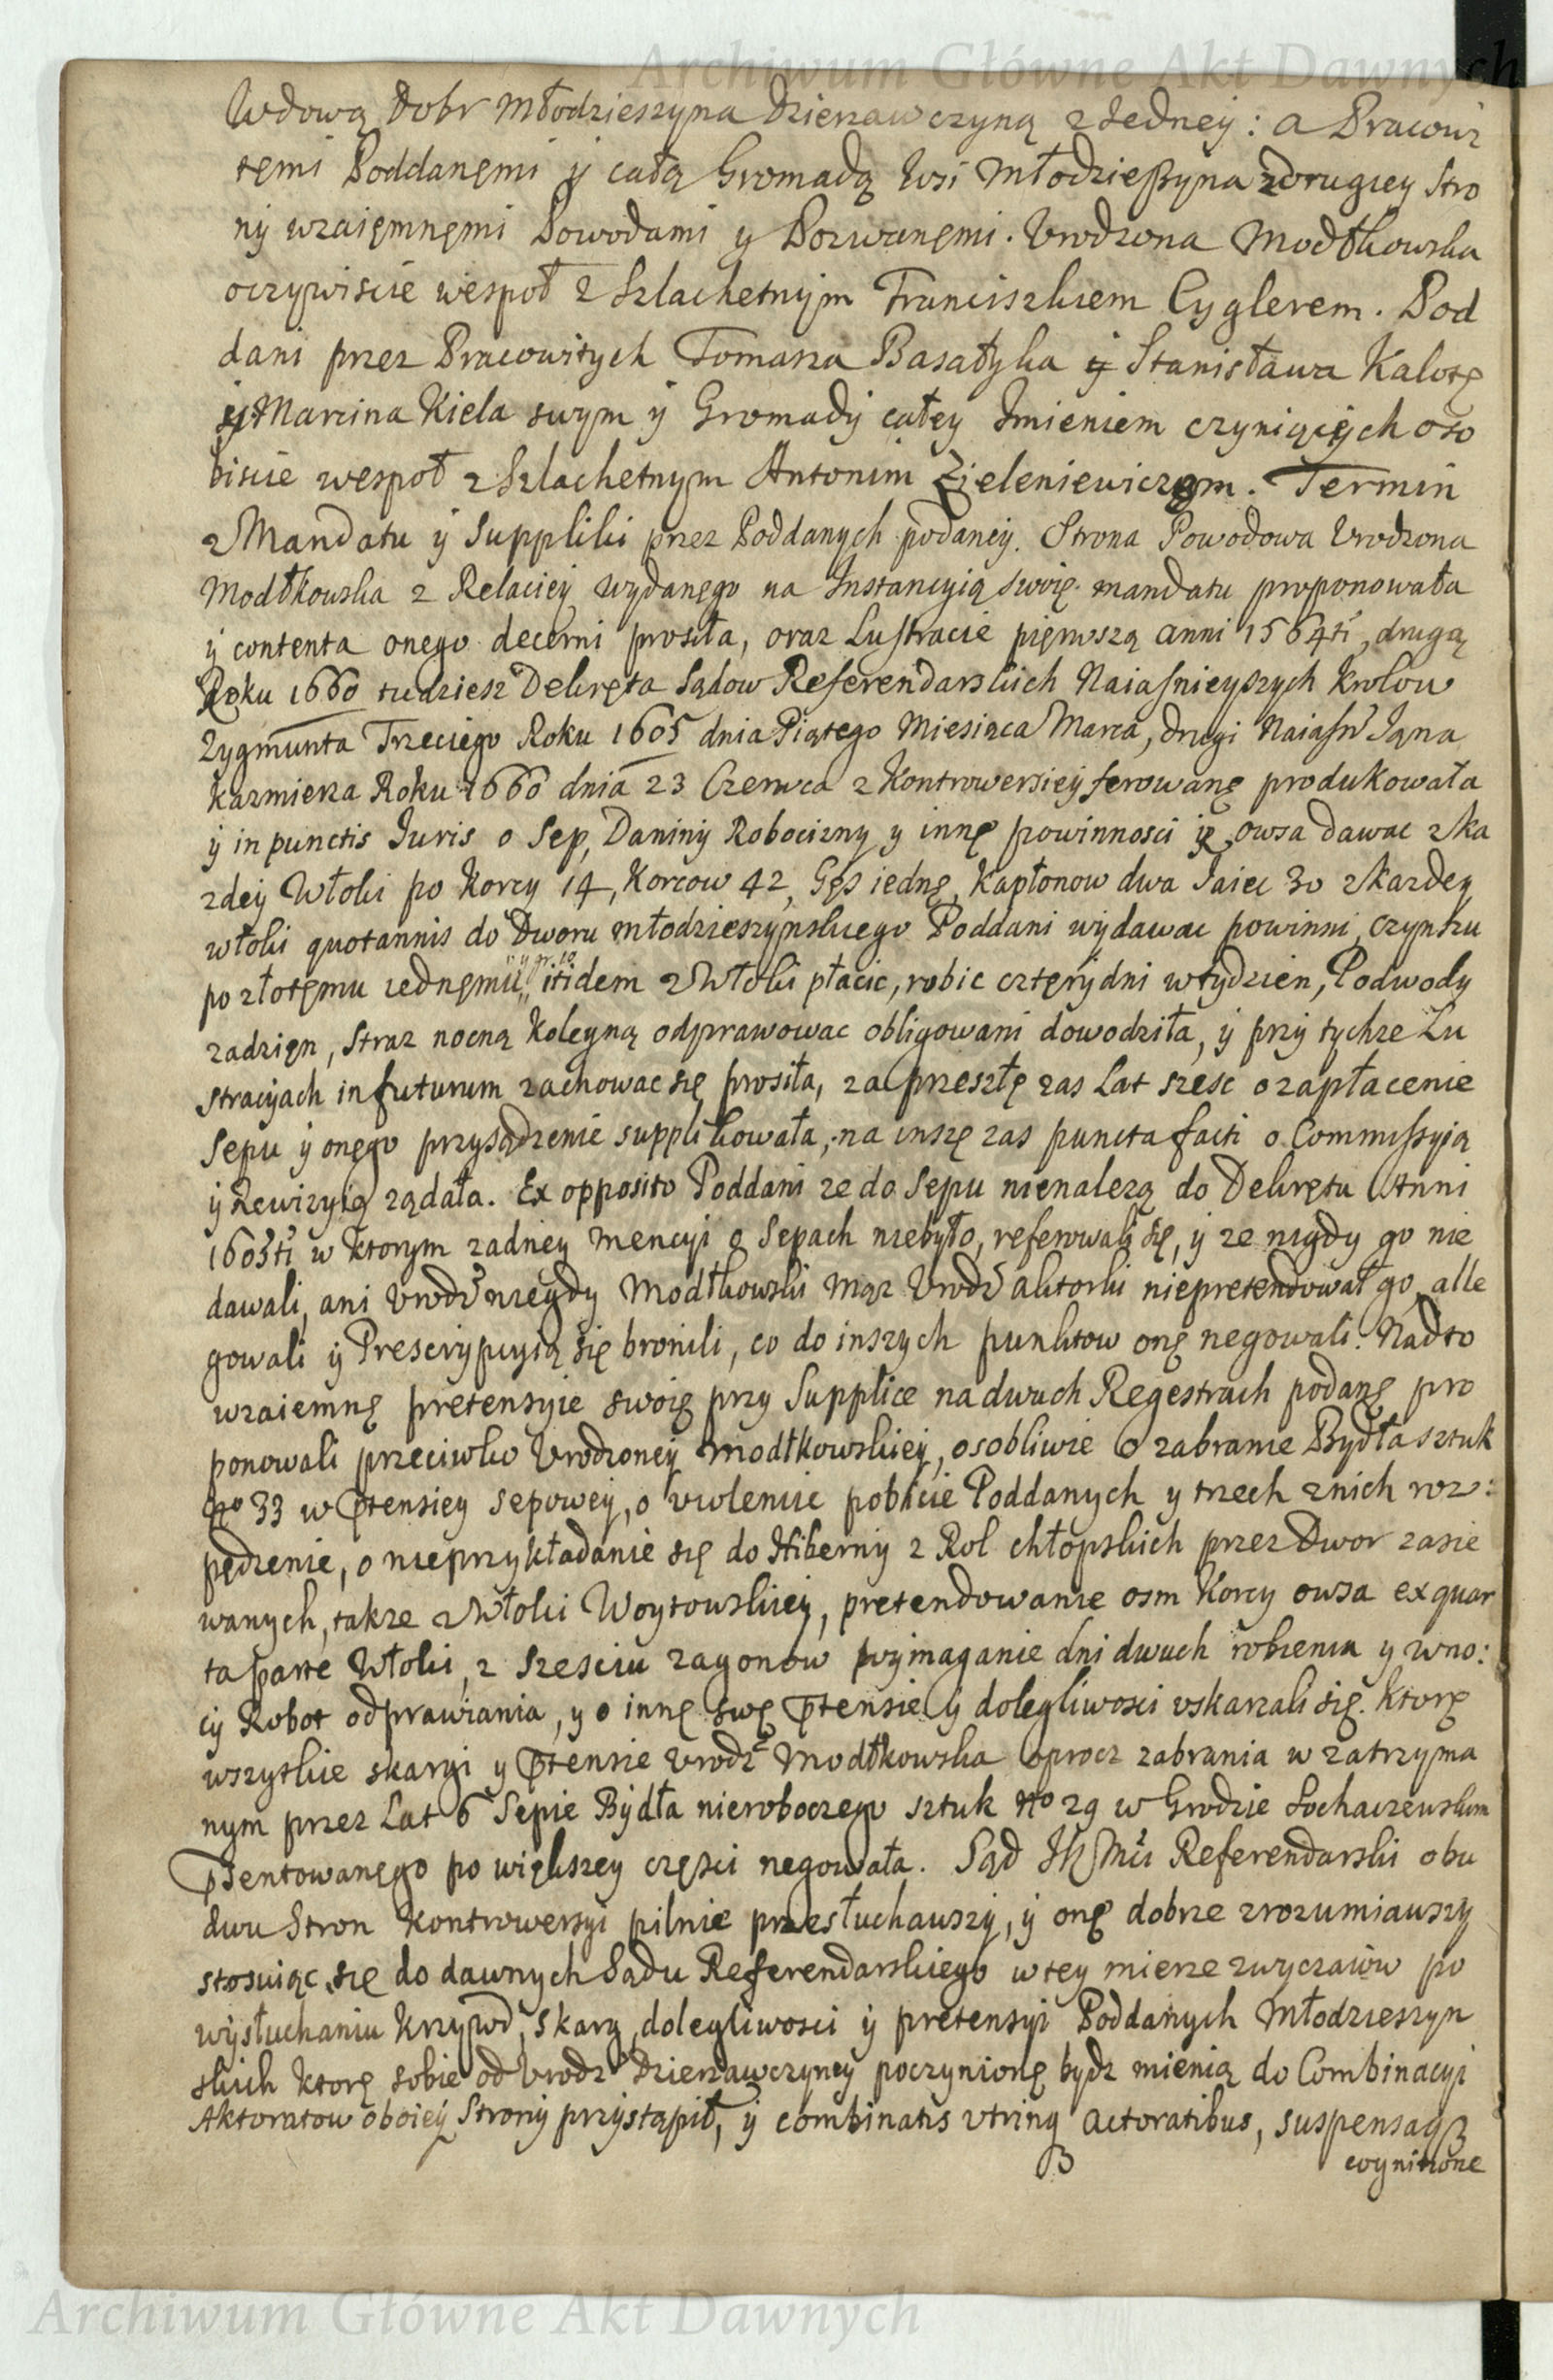 Archiwum Główne Akt Dawnych
Wdową Dobr Młodzieszyna Dzierzawczyną z Jedney: a Pracowi
tęmi Poddanęmi y całą Gromadą Wsi Młodzieszyna z drugiey Stro
ny wzaięmnęmi Powodami y Pozwanęmi. Vrodzona Modłkowska
oczywiscie wespoł z Szlachetnym Franciszkiem Cyglerem. Pod
dani przez Pracowitych Tomasza Basałyka y Stanisława Kalotę
y Marcina Kiela swym y Gromady całey Imieniem czyniących oso
biscie wespoł z Szlachetnym Antonim Zieleniewiczem. Termin
z Mandatu y Suppliki przez Poddanych podaney. Strona Powodowa Vrodzona
Modłkowska z Relaciey wydanęgo na Instancyią swoię mandatu proponowała
y contenta onego decerni prosiła, oraz Lustracie pięrwszą anni 1564ti, drugą
Roku 1660 tudziesz Dekręta Sądow Referendarskich Naiasnieyszych Krolow
Zygmunta Trzeciego Roku 1605 dnia Piątego Miesiąca Marca, drugi Naiasn Jąna
Kazmierza Roku 1660 dnia 23 Czerwca z Kontrowersiey ferowanę produkowała
y in punctis Juris o Sep, Daniny Robocizny y innę powinnosci ię, owsa dawac z Ka
zdey Włoki po Korcy 14, Korcow 42, Gęs iednę, Kapłonow dwa Jaiec 30 z kazdey
włoki quotannis do Dworu młodzieszynskiego Poddani wydawac powinni, czynszu
po złotęmu iednęmu y gr. 10 itidem z Włoki płacic, robic cztęry dni w tydzien, Podwody
zadzięn, straz nocną koleyną odprawowac obligowani dowodziła, y przy tychze Lu
stracyach in futurum zachowac się prosiła, za przeszłę zas Lat szesc o zapłacenie
Sepu y onęgo przysądzenie supplikowała, na inszę zas puncta facti o Commissyią
y Rewizyią ządała. Ex opposito Poddani ze do Sepu nienalezą do Dekrętu Anni
1605ti w ktorym zadney mencyi o Sepach niebyło, referowali się, y ze nigdy go nie
dawali, ani Vrodz niegdy Modłkowski mąz Vrodz aktorki niepretendował go, alle
gowali y Prescrypcyią się bronili, co do inszych punktow onę negowali. Nadto
wzaiemnę pretensyie swoię przy Supplice na dwuch Regestrach podanę pro
ponowali przeciwko Vrodzoney Modłkowskiey, osobliwie o zabranie Bydła sztuk
No 33 w ptensiey sepowey, o uwlenic pobicie Poddanych y trzech z nich roz:
pędzenie, o nieprzykładanie się do Hiberny z Rol chłopskich przez Dwor zasie
wanych, takze z Włoki Woytowskiey, pretendowanie osm Korcy owsa ex quar
ta parte Włoki, z szesciu zagonow wymaganie dni dwuch robienia y wno:
cy Robot odprawiania, y o innę swę ptensie y dolegliwosci vskarzali się. Ktorę
wszytkie skargi y ptensie Vrodz Modłkowska oprocz zabrania w zatrzyma
nym przez Lat 6 Sepie Bydła nieroboczego sztuk No 29 w Grodzie Sochaczewskim
pzentowanęgo po większey części negowała. Sąd JKMci Referendarski obu
dwu Stron Kontrowersyi pilnie przesłuchawszy, y onę dobrze zrozumiawszy
stosuiąc się do dawnych Sądu Referendarskiego w tey mierze zwyczaiow po
wysłuchaniu krzywd, skarg, dolegliwosci y pretensyi Poddanych Młodzieszyn
skich ktorę sobie od Vrodz Dzierzawczyney poczynionę bydz mienią do Combinacyi
Aktoratow oboiey Strony przystąpił, y combinatis vtrinq actoratibus, suspensaq
cognitione
Archiwum Główne Akt Dawnych